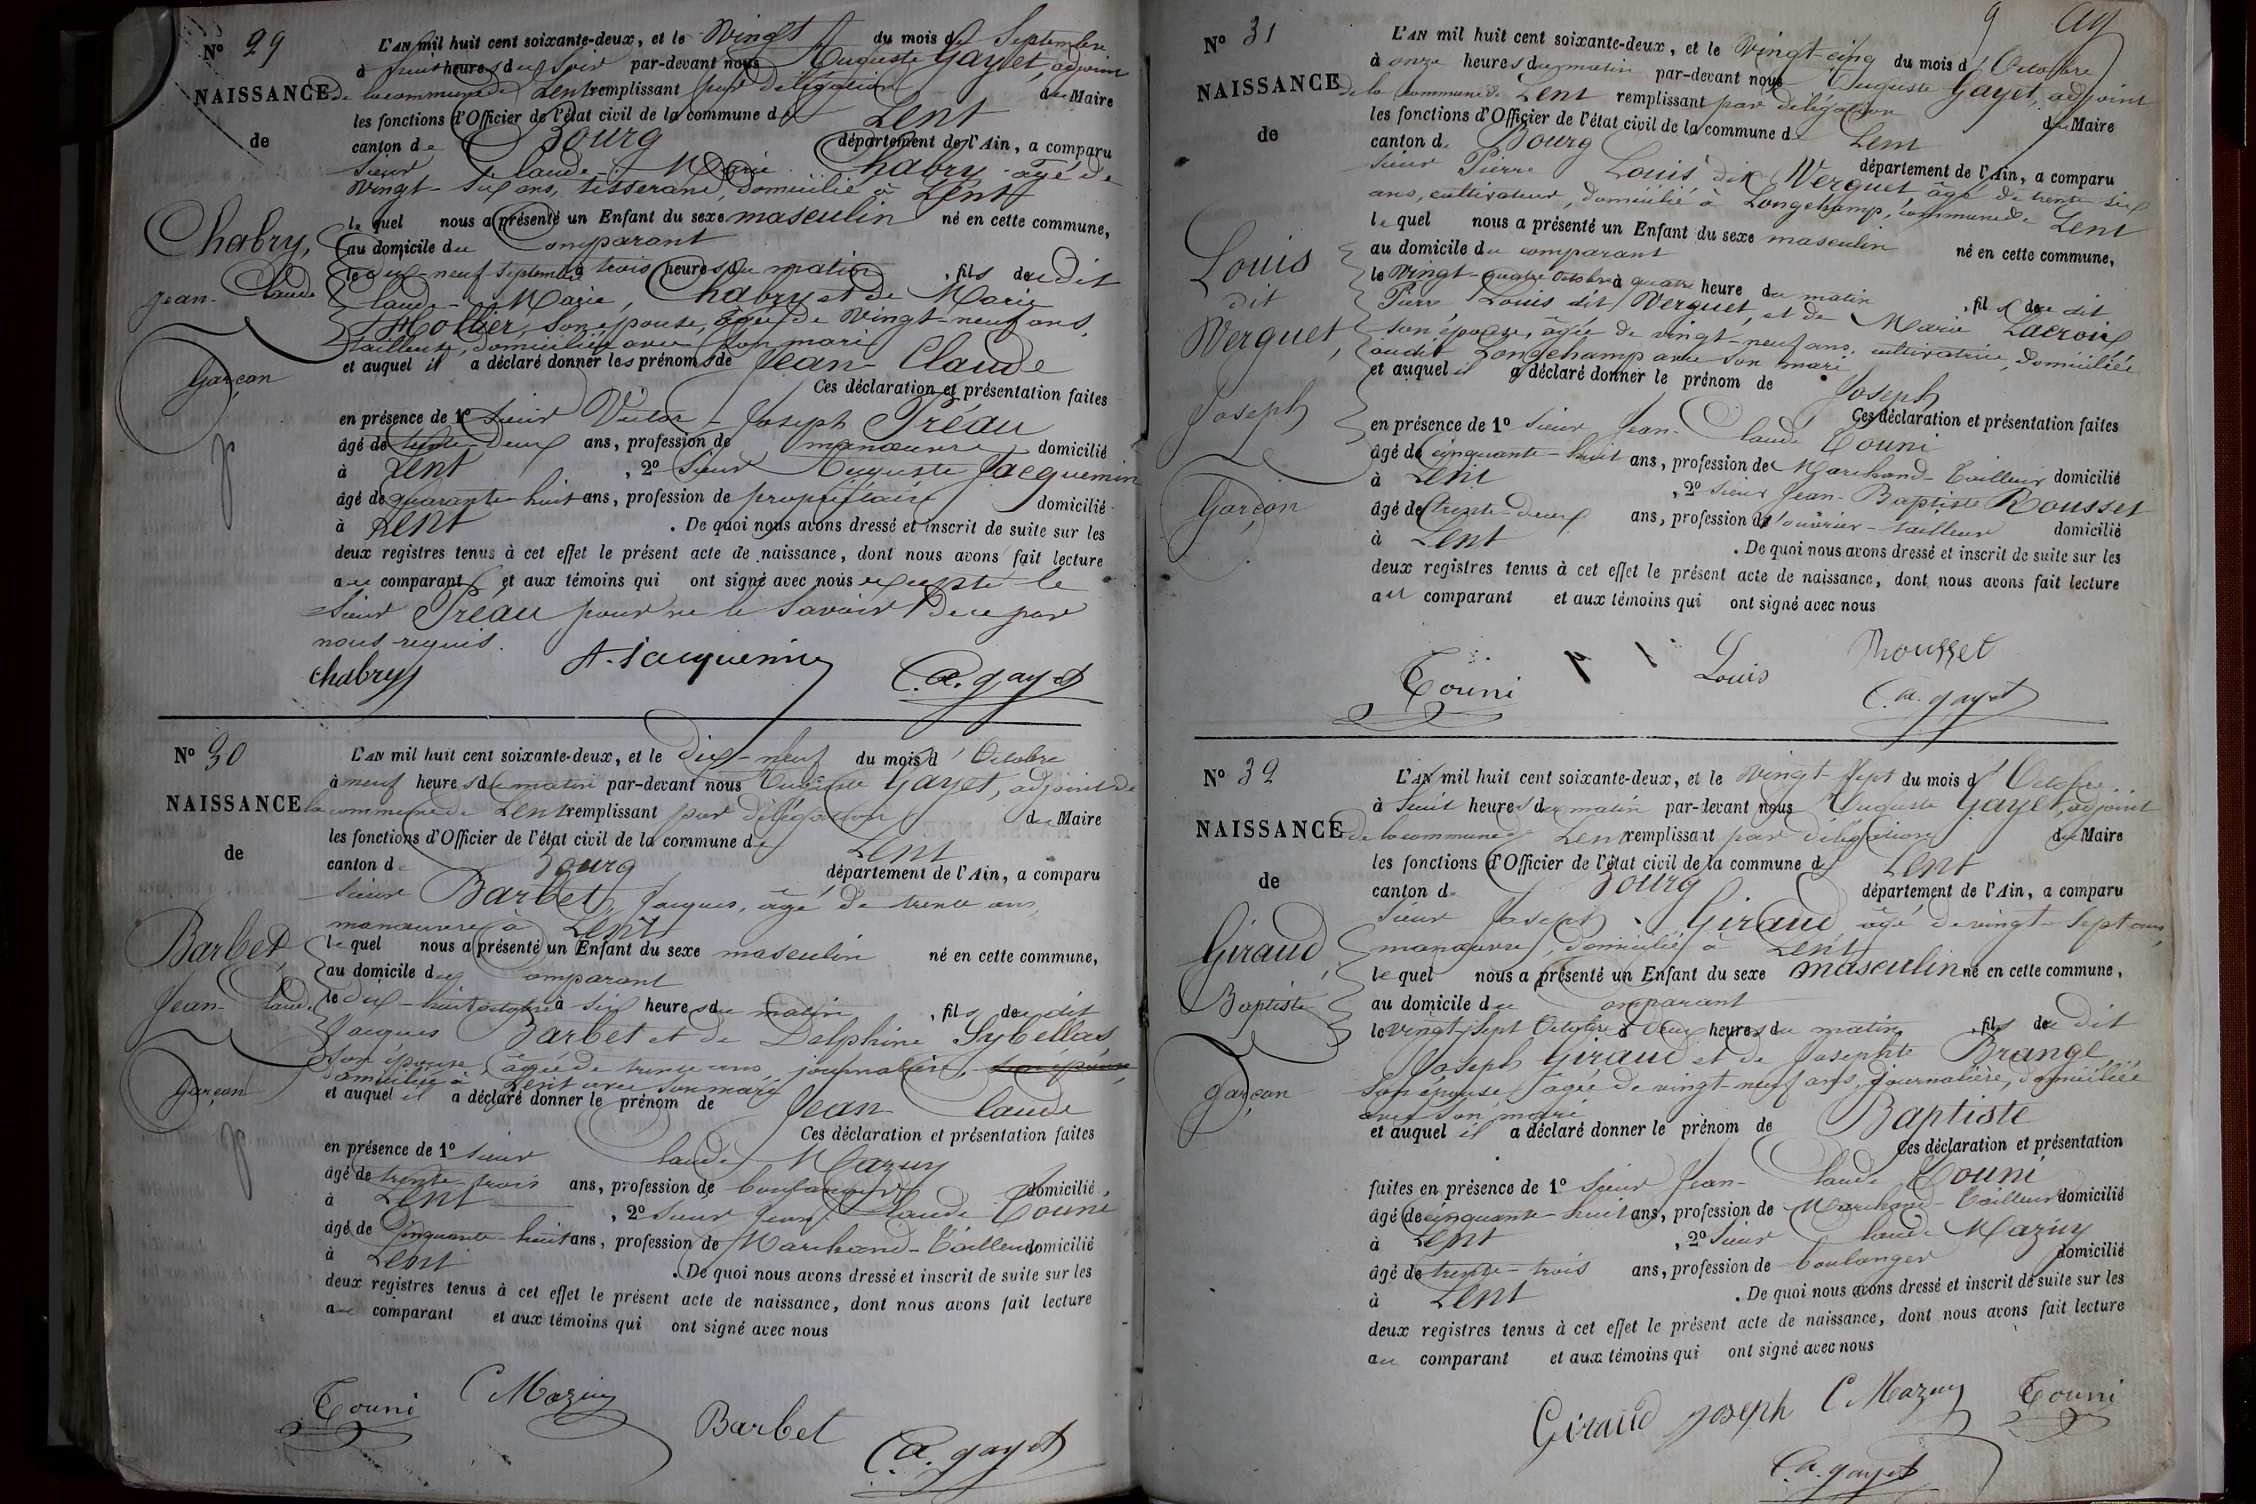 N° 29
L'AN mil huit cent soixante-deux, et le Vingt du mois de Septembre
à huit heures du soir par-devant nous Auguste Gayet, adjoint
NAISSANCE de la commune de Lent remplissant par délégation du Maire
les fonctions d'Officier de l'état civil de la commune de Lent
de
canton de Bourg département de l'Ain, a comparu
Sieur Claude-Marie Chabry âgé de
vingt-six ans, tisserand, domicilié à Lent
lequel nous a présenté un Enfant du sexe masculin né en cette commune,
Chabry,
au domicile du Comparant
Jean-Claude
le dix-neuf Septembre à trois heures du matin, fils du dit
Claude-Marie, Chabry et de Marie
Mollier, son épouse, âgée de vingt-neuf ans,
tailleuse, domiciliée avec son mari
Garçon
et auquel il a déclaré donner les prénoms de Jean Claude
Ces déclaration et présentation faites
en présence de 1° Sieur Victor-Joseph Préau
âgé de trente-deux ans, profession de manoeuvre domicilié
à Lent, 2° Sieur Auguste Jacquemin
âgé de quarante-huit ans, profession de propriétaire domicilié
à Lent. De quoi nous avons dressé et inscrit de suite sur les
deux registres tenus à cet effet le présent acte de naissance, dont nous avons fait lecture
au comparant et aux témoins qui ont signé avec nous excepté le
Sieur Préau pour ne le savoir de ce par
nous requis.
Chabry A. Jacquemin A. Gayet
N° 30
L'AN mil huit cent soixante-deux, et le dix-neuf du mois d'Octobre
à neuf heures du matin par-devant nous Auguste Gayet, adjoint de
NAISSANCE la commune de Lent remplissant par délégation du Maire
les fonctions d'Officier de l'état civil de la commune de Lent
de
canton de Bourg département de l'Ain, a comparu
Sieur Barbet, Jacques, âgé de trente ans,
manoeuvre à Lent
Barbet,
lequel nous a présenté un Enfant du sexe masculin né en cette commune,
au domicile du Comparant
Jean-Claude
le dix-huit octobre à six heures du matin, fils du dit
Jacques Barbet et de Delphine Sybellas
son épouse, âgée de trente ans, journalière, son épouse,
domiciliée à Lent avec son mari
Garçon
et auquel il a déclaré donner le prénom de Jean Claude
Ces déclaration et présentation faites
en présence de 1° Sieur Claude Mazuy
âgé de trente-trois ans, profession de boulanger domicilié,
à Lent, 2° Sieur Jean-Claude Touni
âgé de Cinquante-huit ans, profession de Marchand-Tailleur domicilié
à Lent. De quoi nous avons dressé et inscrit de suite sur les
deux registres tenus à cet effet le présent acte de naissance, dont nous avons fait lecture
au comparant et aux témoins qui ont signé avec nous
Touni C Mazuy Barbet A. Gayet
9
N° 31
L'AN mil huit cent soixante-deux, et le Vingt-cinq du mois d'Octobre
à onze heures du matin par-devant nous Auguste Gayet, adjoint
NAISSANCE de la commune de Lent remplissant par délégation du Maire
les fonctions d'Officier de l'état civil de la commune de Lent
de
canton de Bourg département de l'Ain, a comparu
Sieur Pierre Louis dit Verguet âgé de trente-six
ans, cultivateur, domicilié à Longchamp, commune de Lent
lequel nous a présenté un Enfant du sexe masculin né en cette commune,
Louis
dit
Verguet,
Joseph
au domicile du comparant
le Vingt-quatre Octobre à quatre heure du matin, fils du dit
Pierre Louis dit Verguet, et de Marie Lacroix
son épouse, âgée de vingt-neuf ans, cultivatrice, domiciliée
audit Longchamp avec son mari
et auquel il a déclaré donner le prénom de Joseph
Ces déclaration et présentation faites
en présence de 1° Sieur Jean-Claude Touni
âgé de cinquante-huit ans, profession de Marchand-Tailleur domicilié
à Lent, 2° Sieur Jean-Baptiste Rousset
Garçon
âgé de trente-deux ans, profession d'ouvrier-tailleur domicilié
à Lent. De quoi nous avons dressé et inscrit de suite sur les
deux registres tenus à cet effet le présent acte de naissance, dont nous avons fait lecture
au comparant et aux témoins qui ont signé avec nous
Touni Louis Rousset
A. Gayet
N° 32
L'AN mil huit cent soixante-deux, et le vingt-sept du mois d'Octobre
à huit heures du matin par-devant nous Auguste Gayet, adjoint
NAISSANCE de la commune de Lent remplissant par délégation du Maire
les fonctions d'Officier de l'état civil de la commune de Lent
de
canton de Bourg département de l'Ain, a comparu
Sieur Joseph Giraud âgé de vingt-sept ans,
manoeuvre, domicilié à Lent
Giraud,
lequel nous a présenté un Enfant du sexe masculin né en cette commune,
Baptiste
au domicile du Comparant
le vingt-sept Octobre à deux heures du matin, fils du dit
Joseph Giraud et de Josephte Brange
son épouse, âgée de vingt-neuf ans, journalière, domiciliée
avec son mari
Garçon
et auquel il a déclaré donner le prénom de Baptiste
Ces déclaration et présentation
faites en présence de 1° Sieur Jean-Claude Touni
âgé de cinquante-huit ans, profession de Marchand-Tailleur domicilié
à Lent, 2° Sieur Claude Mazuy
âgé de trente-trois ans, profession de boulanger domicilié
à Lent. De quoi nous avons dressé et inscrit de suite sur les
deux registres tenus à cet effet le présent acte de naissance, dont nous avons fait lecture
au comparant et aux témoins qui ont signé avec nous
Giraud Joseph C Mazuy Touni
A. Gayet